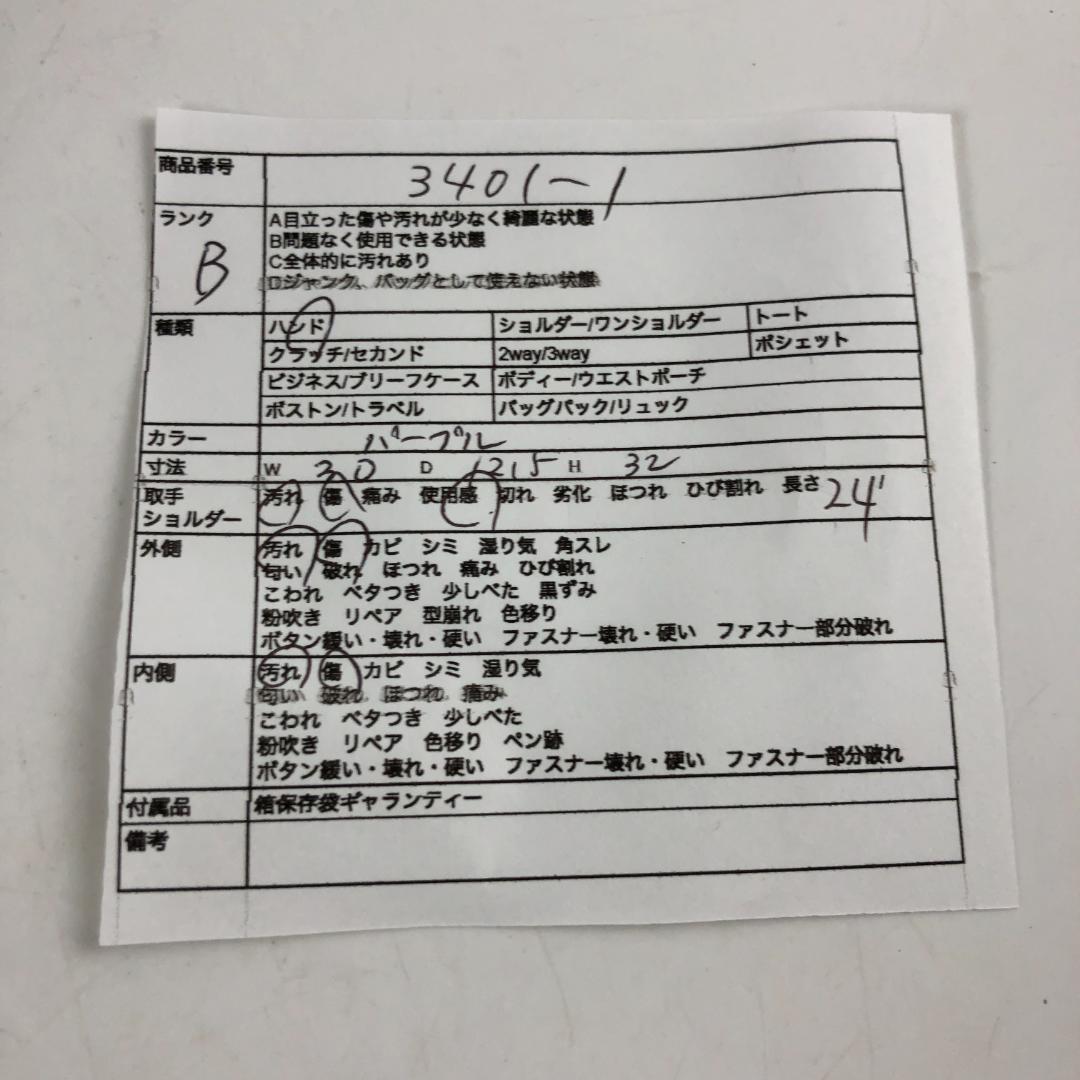 商品番号 3401-1
ランク B
A目立った傷や汚れが少なく綺麗な状態
B問題なく使用できる状態
C全体的に汚れあり
Dジャンク、バッグとして使えない状態
種類 ハンド ショルダー/ワンショルダー トート
クラッチ/セカンド 2way/3way ポシェット
ビジネス/ブリーフケース ボディー/ウエストポーチ
ボストン/トラベル バッグパック/リュック
カラー パープル
寸法 W 30 D 12.5 H 32
取手 汚れ 傷 痛み 使用感 切れ 劣化 ほつれ ひび割れ 長さ 24
ショルダー
外側 汚れ 傷 カビ シミ 湿り気 角スレ
匂い 破れ ほつれ 痛み ひび割れ
こわれ ベタつき 少しべた 黒ずみ
粉吹き リペア 型崩れ 色移り
ボタン緩い・壊れ・硬い ファスナー壊れ・硬い ファスナー部分破れ
内側 汚れ 傷 カビ シミ 湿り気
匂い 破れ ほつれ 痛み
こわれ ベタつき 少しべた
粉吹き リペア 色移り ペン跡
ボタン緩い・壊れ・硬い ファスナー壊れ・硬い ファスナー部分破れ
付属品 箱保存袋ギャランティー
備考